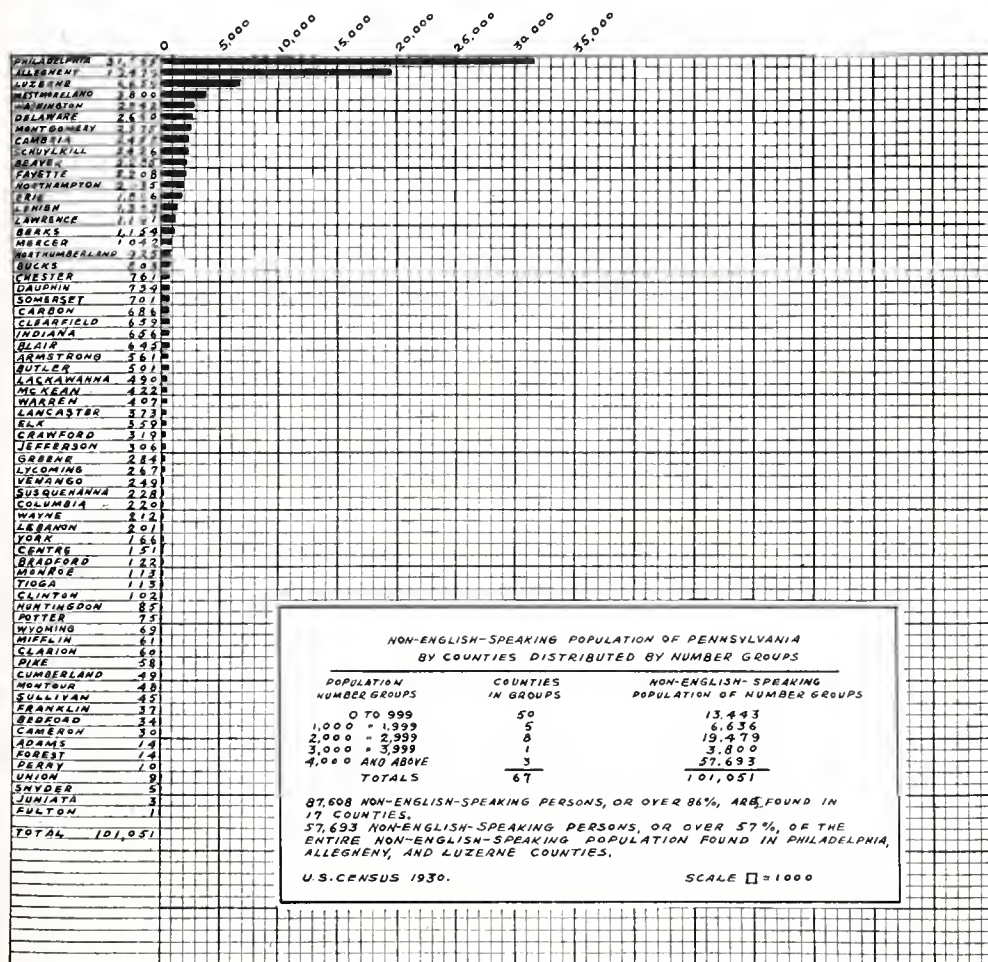 0 5,000 10,000 15,000 20,000 25,000 30,000 35,000
PHILADELPHIA
ALLEGHENY
LUZERNE
WESTMORELAND 3800
WASHINGTON
DELAWARE
MONTGOMERY
CAMBRIA
SCHUYLKILL
BEAVER
FAYETTE 2208
NORTHAMPTON
ERIE
LEHIGH
LAWRENCE
BERKS 1,154
MERCER 1042
NORTHUMBERLAND 925
BUCKS
CHESTER 761
DAUPHIN
SOMERSET 701
CARBON 686
CLEARFIELD 659
INDIANA 656
BLAIR 645
ARMSTRONG 561
BUTLER 501
LACKAWANNA 490
MCKEAN 422
WARREN 407
LANCASTER 373
ELK 359
CRAWFORD 319
JEFFERSON 306
GREENE 284
LYCOMING 267
VENANGO 249
SUSQUEHANNA 228
COLUMBIA - 220
WAYNE 212
LEBANON 201
YORK 166
CENTRE 151
BRADFORD 122
MONROE 113
TIOGA 113
CLINTON 102
HUNTINGDON 85
POTTER 75
WYOMING 69
MIFFLIN 61
CLARION 60
PIKE 58
CUMBERLAND 49
MONTOUR 48
SULLIVAN 45
FRANKLIN 37
BEDFORD 34
CAMERON 30
ADAMS 14
FOREST 14
PERRY 10
UNION 9
SNYDER 5
JUNIATA 3
FULTON 1
TOTAL 101,051
NON-ENGLISH-SPEAKING POPULATION OF PENNSYLVANIA
BY COUNTIES DISTRIBUTED BY NUMBER GROUPS
POPULATION COUNTIES NON-ENGLISH-SPEAKING
NUMBER GROUPS IN GROUPS POPULATION OF NUMBER GROUPS
0 TO 999 50 13.443
1,000 " 1,999 5 6.636
2,000 " 2,999 8 19.479
3,000 " 3,999 1 3.800
4,000 AND ABOVE 3 57.693
TOTALS 67 101,051
87,608 NON-ENGLISH-SPEAKING PERSONS, OR OVER 86%, ARE FOUND IN
17 COUNTIES.
57,693 NON-ENGLISH-SPEAKING PERSONS, OR OVER 57%, OF THE
ENTIRE NON-ENGLISH-SPEAKING POPULATION FOUND IN PHILADELPHIA,
ALLEGHENY, AND LUZERNE COUNTIES.
U.S. CENSUS 1930. SCALE □ = 1000